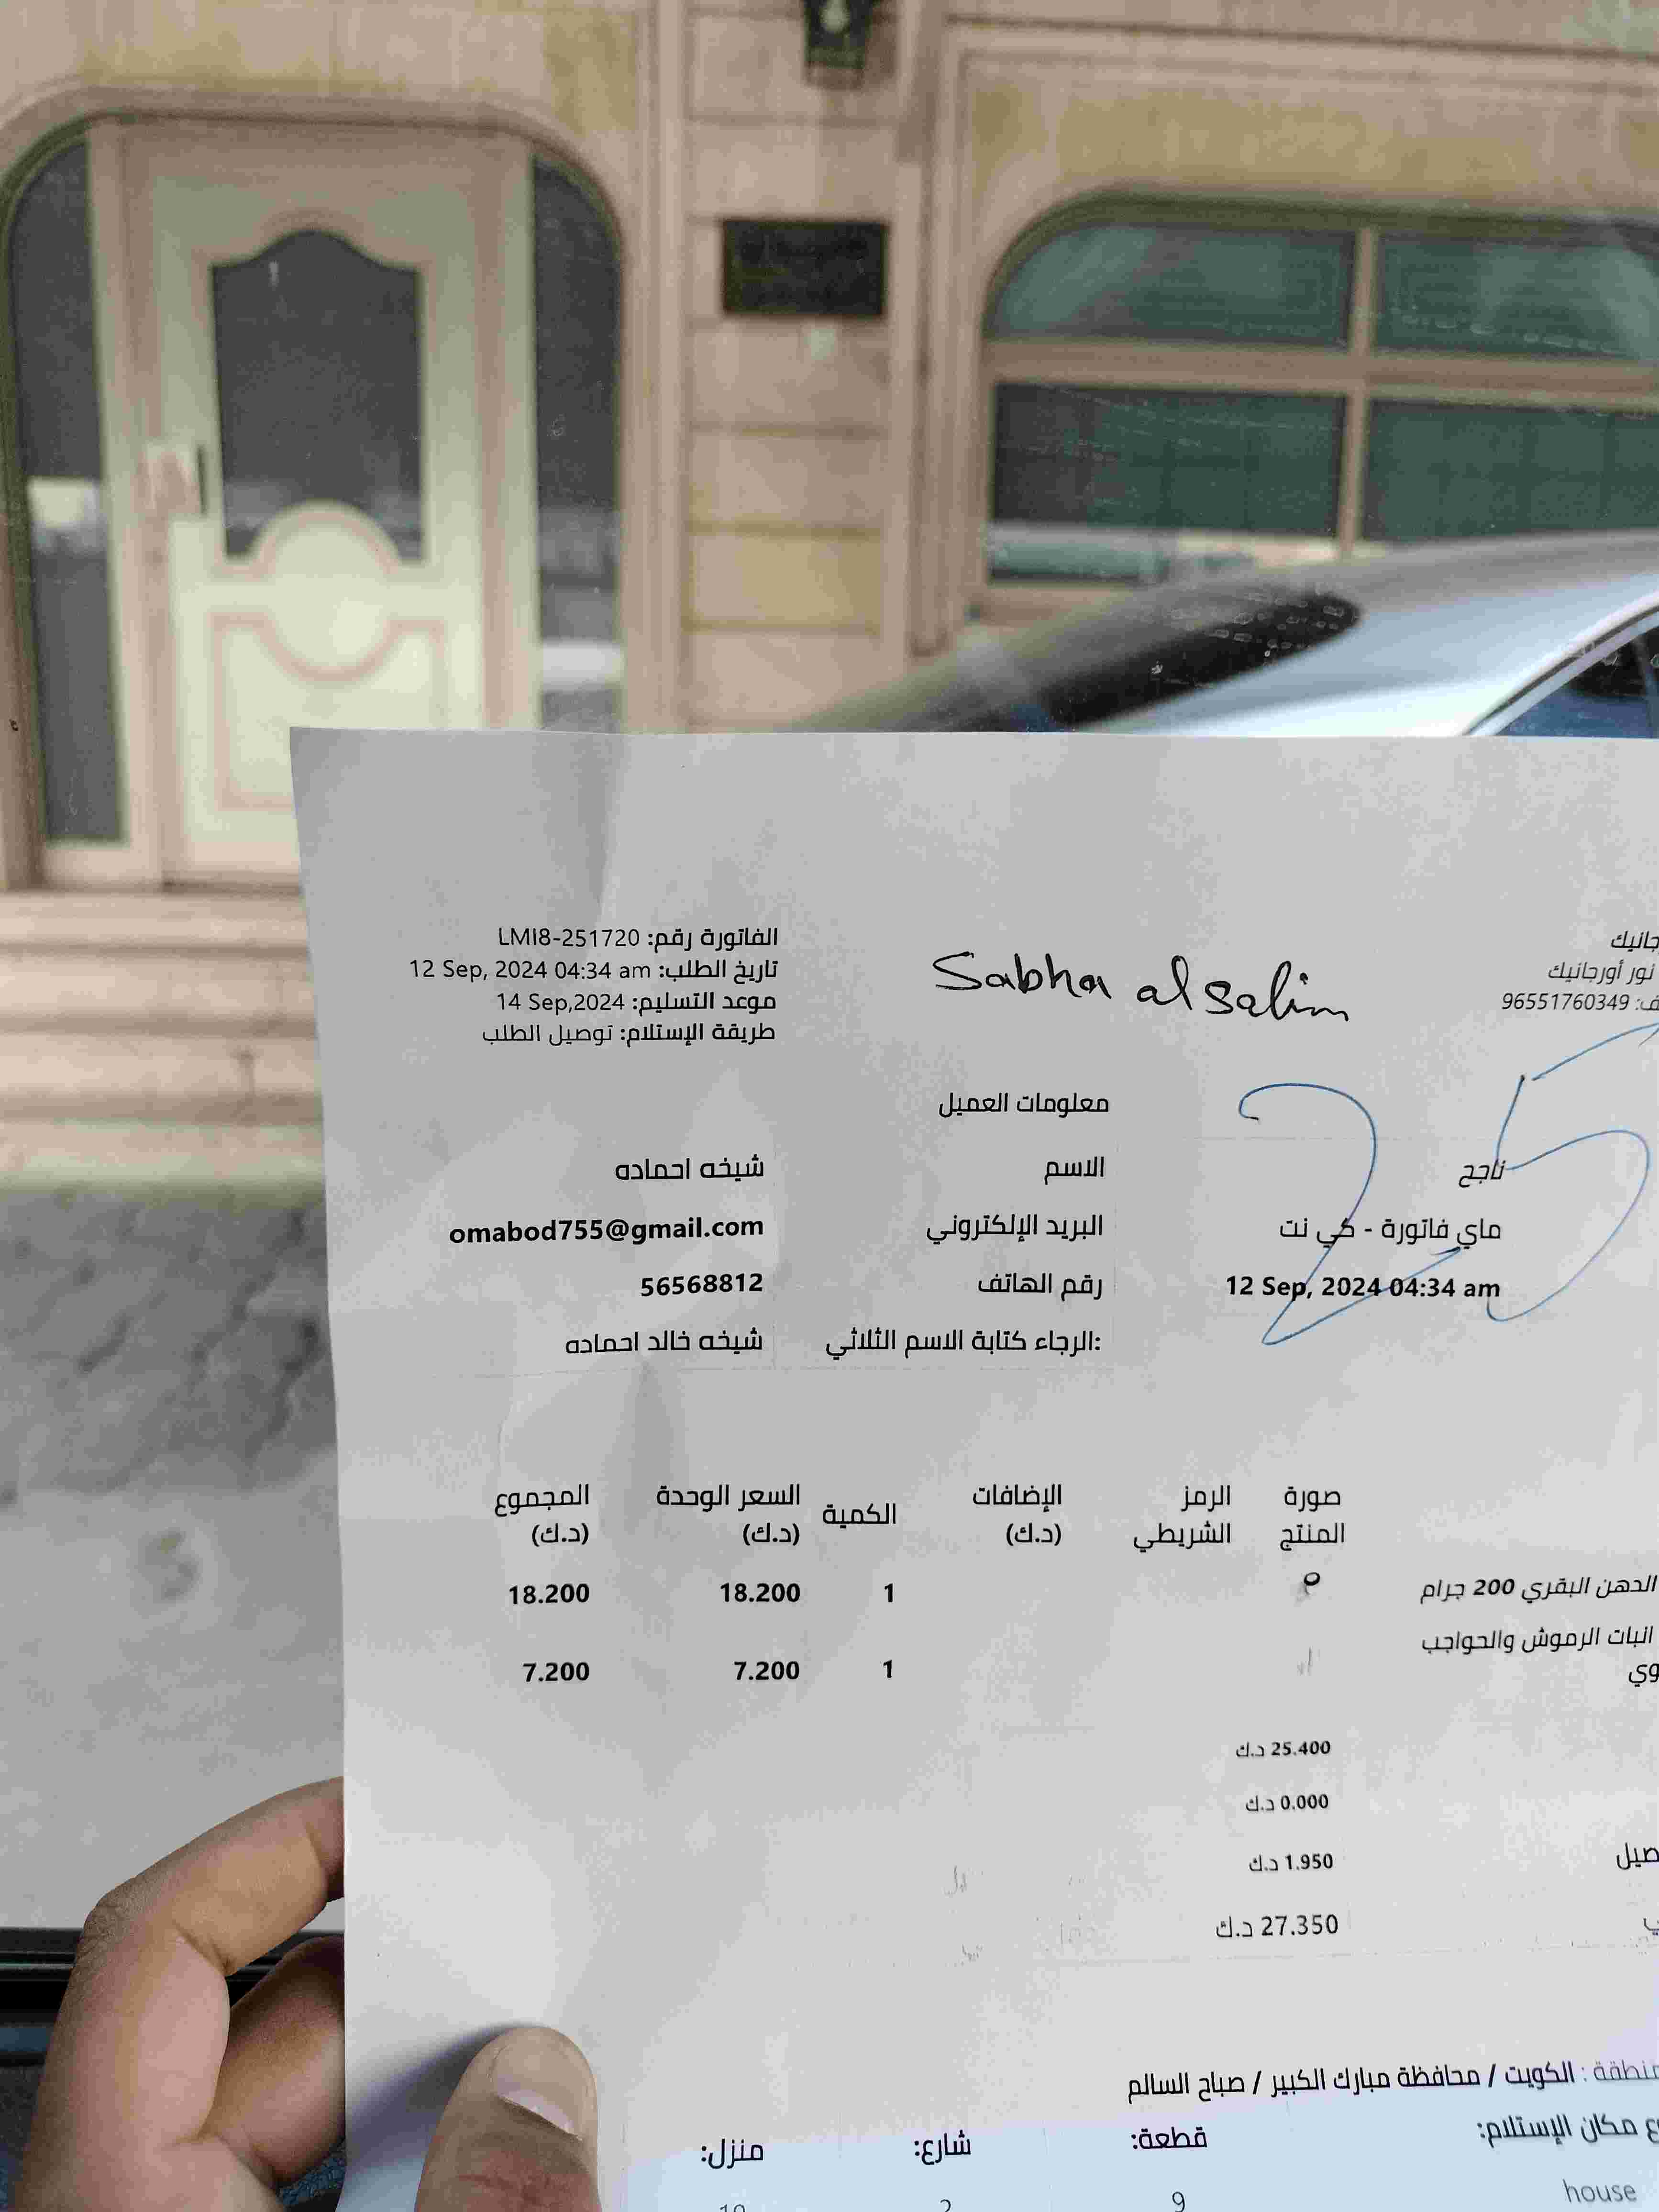 الفاتورة رقم: LMI8-251720
تاريخ الطلب: 12 Sep, 2024 04:34 am
موعد التسليم: 14 Sep,2024
طريقة الإستلام: توصيل الطلب
Sabha al salim
نور أورجانيك
96551760349
25
معلومات العميل
الاسم شيخه احماده
البريد الإلكتروني omabod755@gmail.com
رقم الهاتف 56568812
الرجاء كتابة الاسم الثلاثي: شيخه خالد احماده
ناجح
ماي فاتورة - كي نت
12 Sep, 2024 04:34 am
صورة المنتج الرمز الشريطي الإضافات (د.ك) الكمية السعر الوحدة (د.ك) المجموع (د.ك)
الدهن البقري 200 جرام 1 18.200 18.200
انبات الرموش والحواجب 1 7.200 7.200
25.400 د.ك
0.000 د.ك
1.950 د.ك
27.350 د.ك
الكويت / محافظة مبارك الكبير / صباح السالم
مكان الإستلام: قطعة: شارع: منزل:
house 9 2